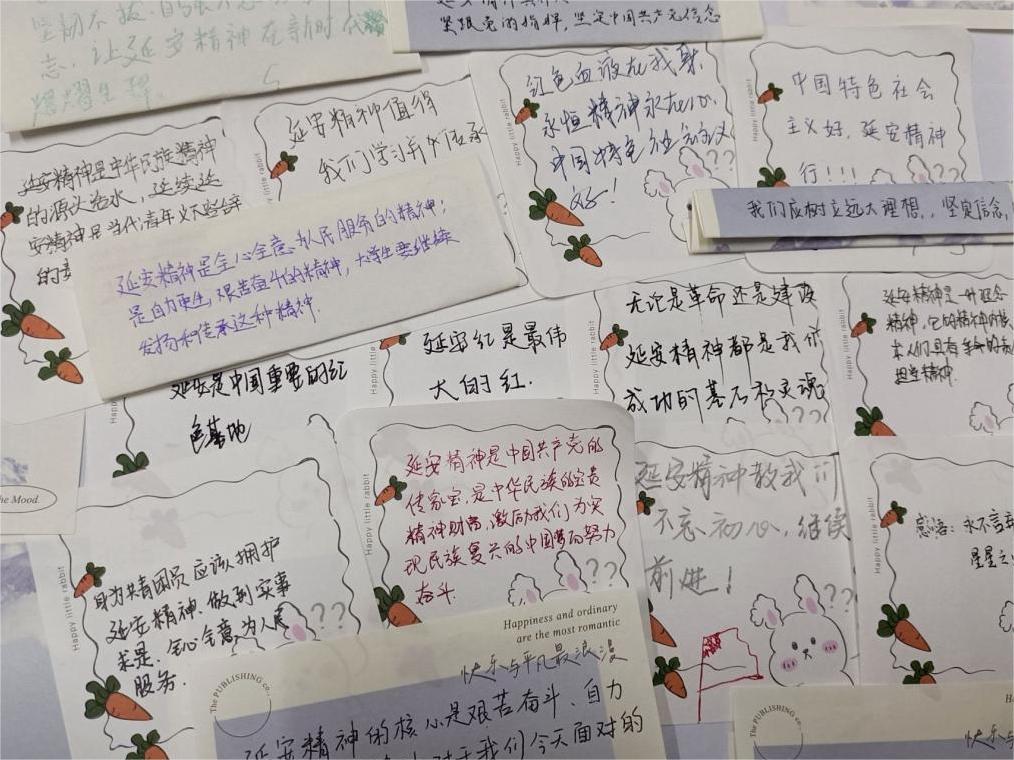 坚韧不拔、自强不息
志，让延安精神在新时代
熠熠生辉。
紧跟党的指挥，坚定中国共产党信念
延安精神是中华民族精神
的源头活水，延续延
安精神是当代青年义不容辞
的
happy little rabbit
延安精神值得
我们学习并传承
happy little rabbit
红色血液在我身
永恒精神永在心
中国特色社会主义
好！
??
happy little rabbit
中国特色社会
主义好，延安精神
行!!!
我们应树立远大理想，坚定信念，
延安精神是全心全意为人民服务的精神；
是自力更生，艰苦奋斗的精神，大学生要继续
发扬和传承这种精神.
Happy
延安是中国重要的红
色基地
延安红是最伟
大的红.
无论是革命还是建设
延安精神都是我们
成功的基石和灵魂
??
Happy little
延安精神是一种理念
精神，它的精神内核
担当精神.
the Mood.
Happy little rabbit
身为共青团员应该拥护
延安精神.做到实事
求是.全心全意为人民
服务.
??
Happy little rabbit
延安精神是中国共产党的
传家宝，是中华民族的宝贵
精神财富，激励我们为实
现民族复兴的中国梦而努力
奋斗
??
延安精神教我们
不忘初心，继续
前进！
??
Happy little rabbit
感悟：永不言弃
星星之
Happiness and ordinary
are the most romantic
快乐与平凡最浪漫
The PUBLISHING co.
延安精神的核心是艰苦奋斗、自力
对于我们今天面对的
The PUBLISHING co.
快乐与